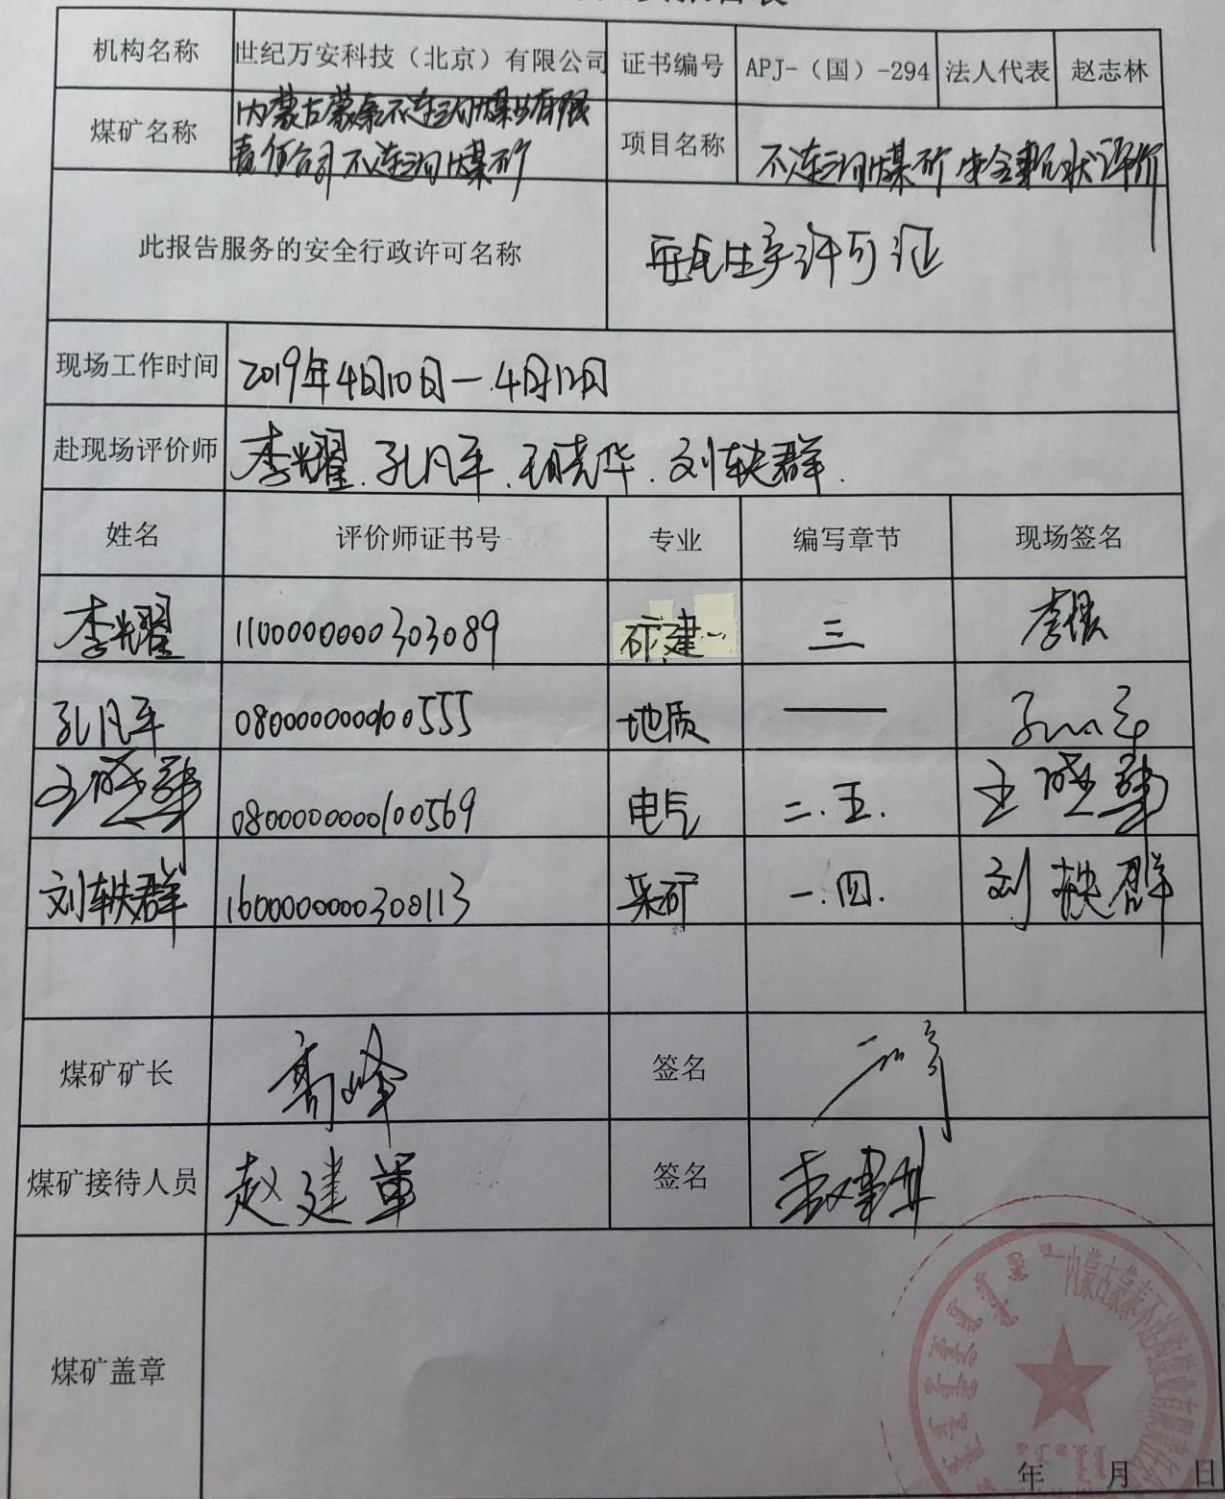 机构名称 世纪万安科技（北京）有限公司 证书编号 APJ-（国）-294 法人代表 赵志林
煤矿名称 内蒙古蒙泰不连沟煤业有限
责任公司不连沟煤矿 项目名称 不连沟煤矿安全现状评价
此报告服务的安全行政许可名称 安全生产许可证
现场工作时间 2019年4月10日—4月12日
赴现场评价师 李耀、孔凡平、王晓华、刘轶群.
姓名 评价师证书号 专业 编写章节 现场签名
李耀 1100000000303089 矿建 三 李耀
孔凡平 0800000000100555 地质 —— 孔凡平
王晓华 0800000000100569 电气 二.五. 王晓华
刘轶群 1600000000300113 采矿 一.四. 刘轶群
煤矿矿长 高峰 签名
煤矿接待人员 赵建军 签名
煤矿盖章
内蒙古蒙泰不连沟煤业有限责任公
年 月 日